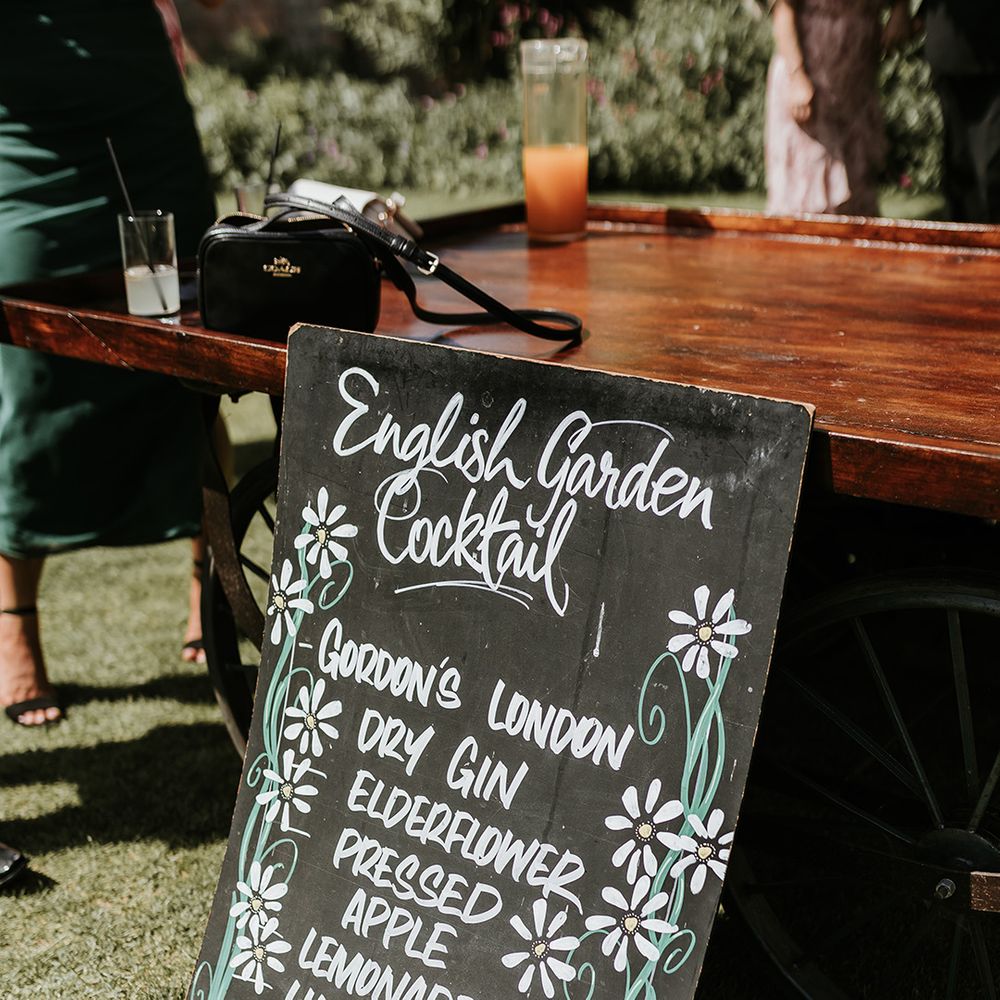 COACH
English Garden
Cocktail
- GORDON'S LONDON
DRY GIN
ELDERFLOWER
PRESSED
APPLE
LEMONADE